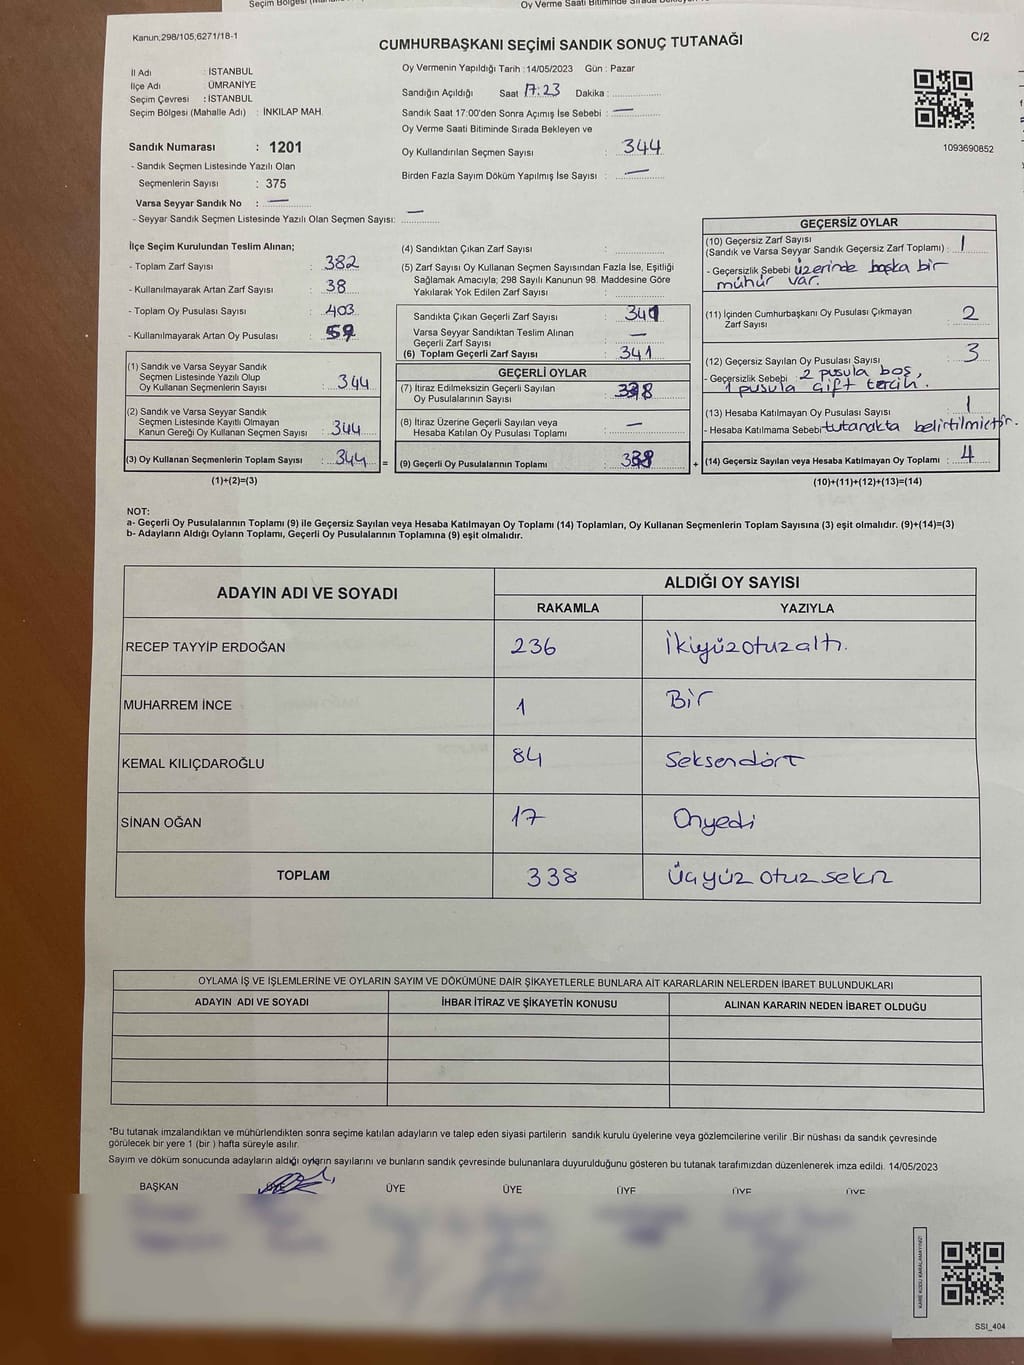 Oy Verme Saati Bitiminde Sırada
Kanun;298/105,6271/18-1
C/2
CUMHURBAŞKANI SEÇİMİ SANDIK SONUÇ TUTANAĞI
İl Adı : İSTANBUL
İlçe Adı : ÜMRANİYE
Seçim Çevresi : İSTANBUL
Seçim Bölgesi (Mahalle Adı) : İNKILAP MAH.
Oy Vermenin Yapıldığı Tarih : 14/05/2023 Gün : Pazar
Sandığın Açıldığı Saat 17:23 Dakika :
Sandık Saat 17:00'den Sonra Açımış İse Sebebi : —
Oy Verme Saati Bitiminde Sırada Bekleyen ve
Oy Kullandırılan Seçmen Sayısı : 344
Birden Fazla Sayım Döküm Yapılmış İse Sayısı : —
1093690852
Sandık Numarası : 1201
- Sandık Seçmen Listesinde Yazılı Olan
Seçmenlerin Sayısı : 375
Varsa Seyyar Sandık No : —
- Seyyar Sandık Seçmen Listesinde Yazılı Olan Seçmen Sayısı: —
İlçe Seçim Kurulundan Teslim Alınan;
- Toplam Zarf Sayısı : 382
- Kullanılmayarak Artan Zarf Sayısı : 38
- Toplam Oy Pusulası Sayısı : 403
- Kullanılmayarak Artan Oy Pusulası : 59
(1) Sandık ve Varsa Seyyar Sandık
Seçmen Listesinde Yazılı Olup
Oy Kullanan Seçmenlerin Sayısı : 344
(2) Sandık ve Varsa Seyyar Sandık
Seçmen Listesinde Kayıtlı Olmayan
Kanun Gereği Oy Kullanan Seçmen Sayısı : 344
(3) Oy Kullanan Seçmenlerin Toplam Sayısı : 344 =
(1)+(2)=(3)
(4) Sandıktan Çıkan Zarf Sayısı :
(5) Zarf Sayısı Oy Kullanan Seçmen Sayısından Fazla İse, Eşitliği
Sağlamak Amacıyla; 298 Sayılı Kanunun 98. Maddesine Göre
Yakılarak Yok Edilen Zarf Sayısı :
Sandıkta Çıkan Geçerli Zarf Sayısı : 341
Varsa Seyyar Sandıktan Teslim Alınan
Geçerli Zarf Sayısı : —
(6) Toplam Geçerli Zarf Sayısı : 341
GEÇERLİ OYLAR
(7) İtiraz Edilmeksizin Geçerli Sayılan
Oy Pusulalarının Sayısı : 338
(8) İtiraz Üzerine Geçerli Sayılan veya
Hesaba Katılan Oy Pusulası Toplamı : —
(9) Geçerli Oy Pusulalarının Toplamı : 338 +
GEÇERSİZ OYLAR
(10) Geçersiz Zarf Sayısı
(Sandık ve Varsa Seyyar Sandık Geçersiz Zarf Toplamı) : 1
- Geçersizlik Sebebi : üzerinde başka bir
mühür var.
(11) İçinden Cumhurbaşkanı Oy Pusulası Çıkmayan
Zarf Sayısı : 2
(12) Geçersiz Sayılan Oy Pusulası Sayısı : 3
- Geçersizlik Sebebi : 2 pusula boş,
1 pusula çift tercih.
(13) Hesaba Katılmayan Oy Pusulası Sayısı : 1
- Hesaba Katılmama Sebebi : tutanakta belirtilmiştir.
(14) Geçersiz Sayılan veya Hesaba Katılmayan Oy Toplamı : 4
(10)+(11)+(12)+(13)=(14)
NOT:
a- Geçerli Oy Pusulalarının Toplamı (9) ile Geçersiz Sayılan veya Hesaba Katılmayan Oy Toplamı (14) Toplamları, Oy Kullanan Seçmenlerin Toplam Sayısına (3) eşit olmalıdır. (9)+(14)=(3)
b- Adayların Aldığı Oyların Toplamı, Geçerli Oy Pusulalarının Toplamına (9) eşit olmalıdır.
ADAYIN ADI VE SOYADI
ALDIĞI OY SAYISI
RAKAMLA YAZIYLA
RECEP TAYYİP ERDOĞAN 236 İkiyüzotuzaltı.
MUHARREM İNCE 1 Bir
KEMAL KILIÇDAROĞLU 84 Seksendört
SİNAN OĞAN 17 Onyedi
TOPLAM 338 Üçyüzotuzsekiz
OYLAMA İŞ VE İŞLEMLERİNE VE OYLARIN SAYIM VE DÖKÜMÜNE DAİR ŞİKAYETLERLE BUNLARA AİT KARARLARIN NELERDEN İBARET BULUNDUKLARI
ADAYIN ADI VE SOYADI İHBAR İTİRAZ VE ŞİKAYETİN KONUSU ALINAN KARARIN NEDEN İBARET OLDUĞU
*Bu tutanak imzalandıktan ve mühürlendikten sonra seçime katılan adayların ve talep eden siyasi partilerin sandık kurulu üyelerine veya gözlemcilerine verilir .Bir nüshası da sandık çevresinde
görülecek bir yere 1 (bir ) hafta süreyle asılır.
Sayım ve döküm sonucunda adayların aldığı oyların sayılarını ve bunların sandık çevresinde bulunanlara duyurulduğunu gösteren bu tutanak tarafımızdan düzenlenerek imza edildi. 14/05/2023
BAŞKAN ÜYE ÜYE ÜYE ÜYE ÜYE ÜYE
KARE KODU KARALAMAYINIZ!
SSI_404